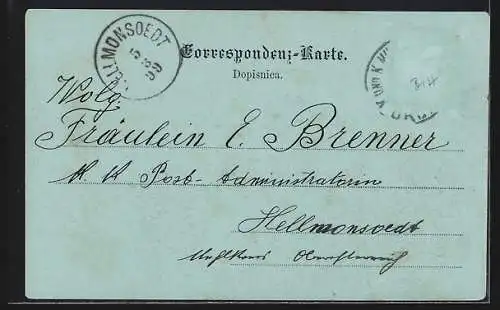 HELLMONSOEDT
5
8
99
Correspondenz-Karte.
Dopisnica.
BiH
Wolg.
Fräulein E. Brenner
K. K. Post-Administratorin
Hellmonsoedt
Mühlkreis Oberösterreich